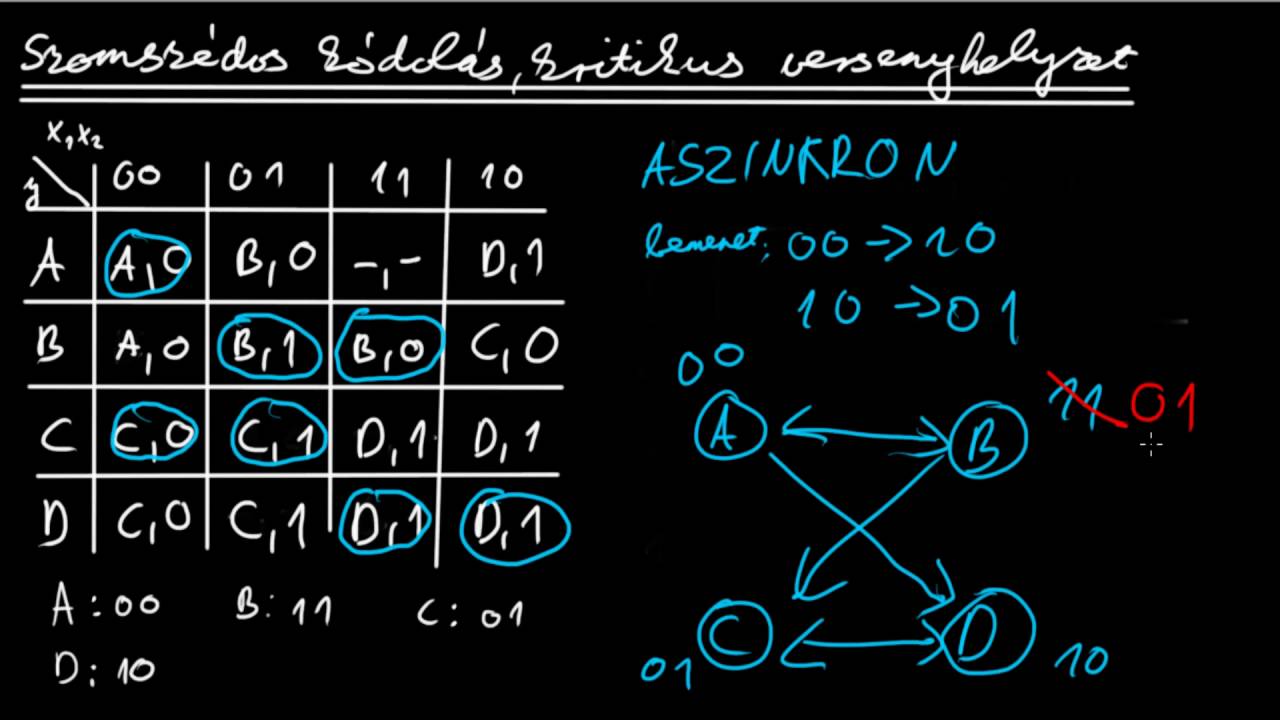 Szomszédos kódolás, kritikus versenyhelyzet
x1x2
y 00 01 11 10
A A,0 B,0 -,- D,1
B A,0 B,1 B,0 C,0
C C,0 C,1 D,1 D,1
D C,0 C,1 D,1 D,1
A:00 B:11 C:01
D:10
ASZINKRON
bemenet: 00 -> 10
10 -> 01
00 A B 11 01
01 C D 10